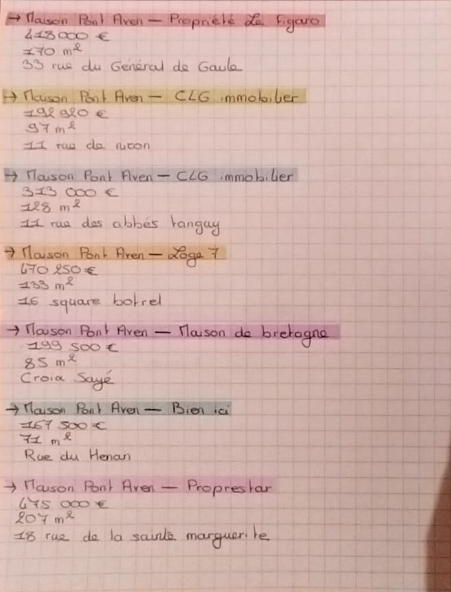 → Maison Pont Aven — Propriété Le Figaro
418 000 €
170 m²
33 rue du Général de Gaule
→ Maison Pont Aven — CLG immobilier
192 920 €
97 m²
11 rue de
→ Maison Pont Aven — CLG immobilier
313 000 €
128 m²
11 rue des abbés tanguy
→ Maison Pont Aven — Loge 7
470 250 €
133 m²
16 square botrel
→ Maison Pont Aven — Maison de bretagne
199 500 €
85 m²
Croix Sayé
→ Maison Pont Aven — Bien ici
167 500 €
71 m²
Rue du Henan
→ Maison Pont Aven — Proprestar
475 000 €
207 m²
18 rue de la sainte marguerite